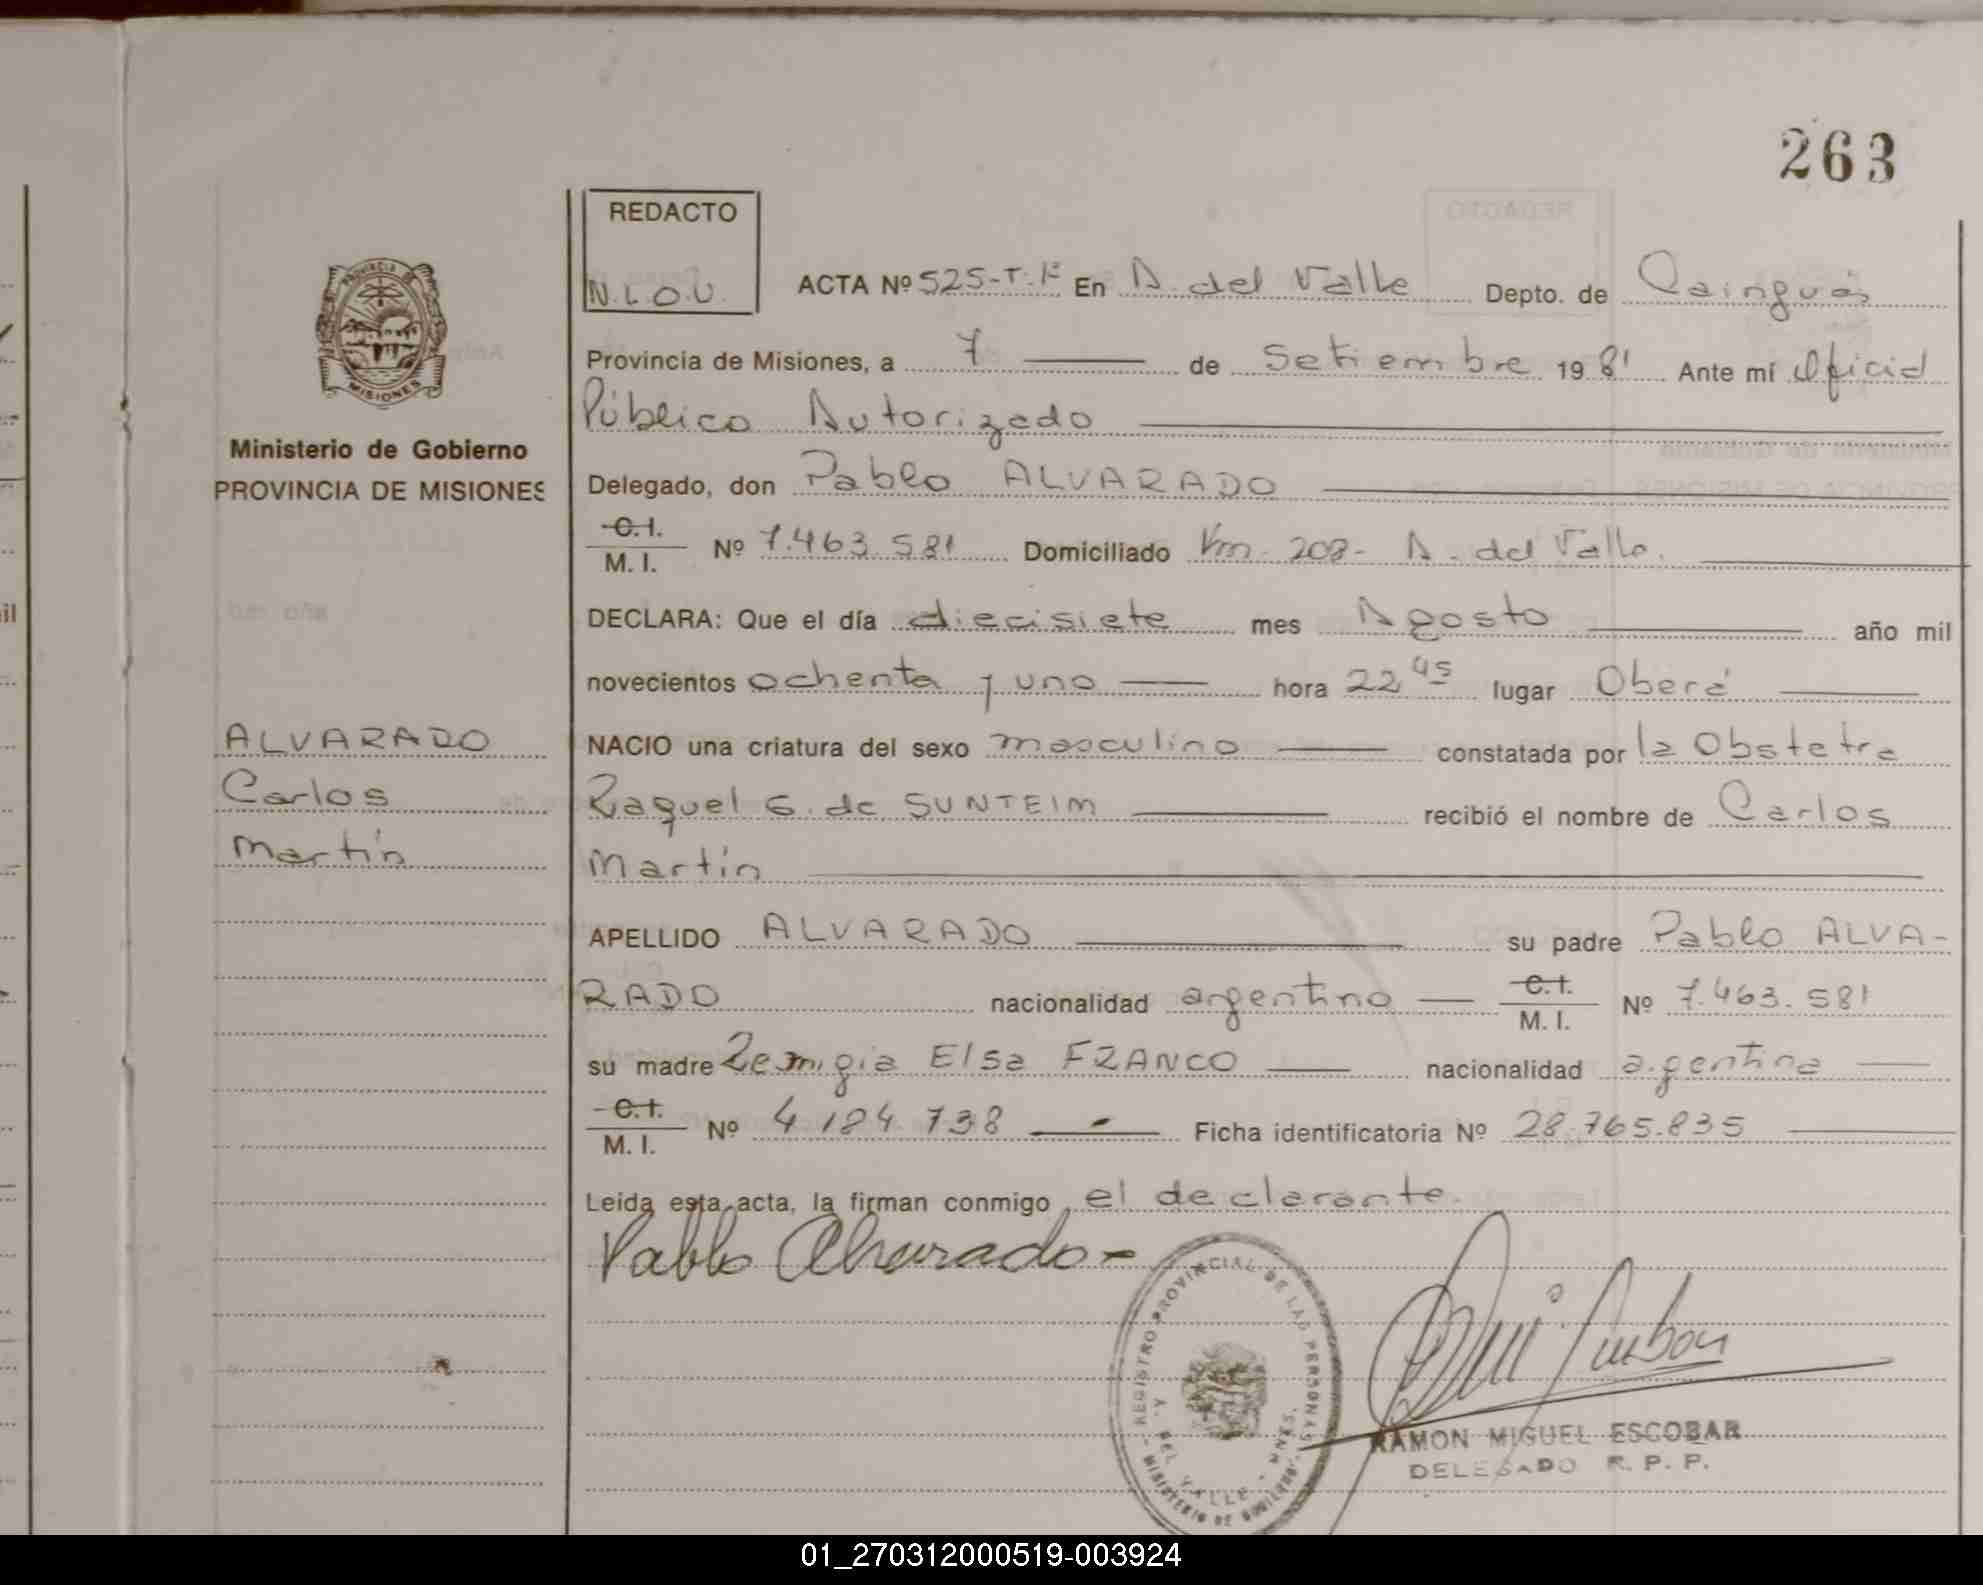 263
REDACTO
N.L.O.U.
PROVINCIA DE
MISIONES
Ministerio de Gobierno
PROVINCIA DE MISIONES
ALVARADO
Carlos
Martín
ACTA Nº 525-T. En A. del Valle Depto. de Cainguás
Provincia de Misiones, a 7 de Setiembre 1981 Ante mí Oficial
Público Autorizado
Delegado, don Pablo ALVARADO
C.I.
M. I. Nº 7.463.581 Domiciliado Km. 208- A. del Valle.
DECLARA: Que el día diecisiete mes Agosto año mil
novecientos ochenta y uno hora 22 45 lugar Oberá
NACIO una criatura del sexo masculino constatada por la Obstetra
Raquel G. de SUNTEIM recibió el nombre de Carlos
Martín
APELLIDO ALVARADO su padre Pablo ALVA-
RADO nacionalidad argentino C.I. M. I. Nº 7.463.581
su madre Remigia Elsa FRANCO nacionalidad argentina
C.I.
M. I. Nº 4 184 738 Ficha identificatoria Nº 28.765.835
Leída esta acta, la firman conmigo el declarante.
Pablo Alvarado
REGISTRO PROVINCIAL DE LAS PERSONAS
A. DEL VALLE - MNES.
MINISTERIO DE GOBIERNO
RAMON MIGUEL ESCOBAR
DELEGADO R. P. P.
01_270312000519-003924